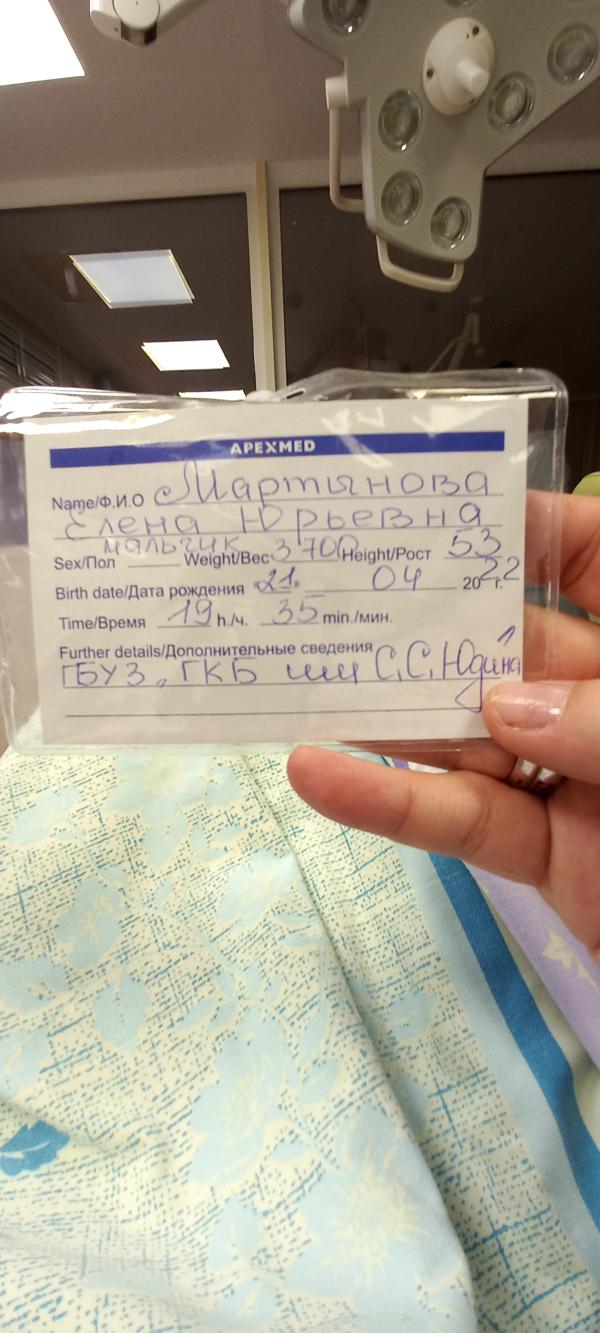 APEXMED
Name/Ф.И.О Мартынова
Елена Юрьевна
Sex/Пол мальчик Weight/Вес 3700 Height/Рост 53
Birth date/Дата рождения 21. 04 2022 г.
Time/Время 19 h./ч. 35 min./мин.
Further details/Дополнительные сведения
ГБУЗ „ГКБ им С.С. Юдина